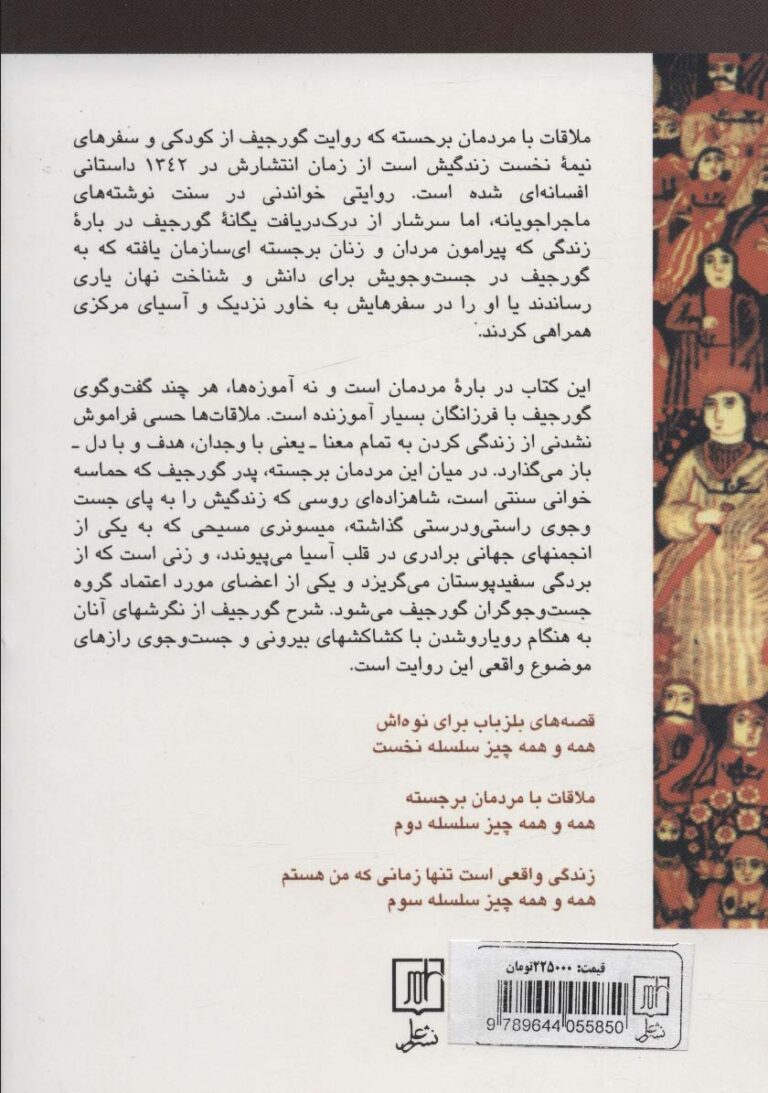 ملاقات با مردمان برحسته که روایت گورجیف از کودکی و سفرهای
نیمهٔ نخست زندگیش است از زمان انتشارش در ۱۳۴۲ داستانی
افسانه‌ای شده است. روایتی خواندنی در سنت نوشته‌های
ماجراجویانه، اما سرشار از درک‌دریافت یگانهٔ گورجیف در بارهٔ
زندگی که پیرامون مردان و زنان برجسته ای‌سازمان یافته که به
گورجیف در جست‌وجویش برای دانش و شناخت نهان یاری
رساندند یا او را در سفرهایش به خاور نزدیک و آسیای مرکزی
همراهی کردند.
این کتاب در بارهٔ مردمان است و نه آموزه‌ها، هر چند گفت‌وگوی
گورجیف با فرزانگان بسیار آموزنده است. ملاقات‌ها حسی فراموش
نشدنی از زندگی کردن به تمام معنا ـ یعنی با وجدان، هدف و با دل ـ
باز می‌گذارد. در میان این مردمان برجسته، پدر گورجیف که حماسه
خوانی سنتی است، شاهزاده‌ای روسی که زندگیش را به پای جست
وجوی راستی‌ودرستی گذاشته، میسونری مسیحی که به یکی از
انجمنهای جهانی برادری در قلب آسیا می‌پیوندد، و زنی است که از
بردگی سفیدپوستان می‌گریزد و یکی از اعضای مورد اعتماد گروه
جست‌وجوگران گورجیف می‌شود. شرح گورجیف از نگرشهای آنان
به هنگام رویاروشدن با کشاکشهای بیرونی و جست‌وجوی رازهای
موضوع واقعی این روایت است.
قصه‌های بلزباب برای نوه‌اش
همه و همه چیز سلسله نخست
ملاقات با مردمان برجسته
همه و همه چیز سلسله دوم
زندگی واقعی است تنها زمانی که من هستم
همه و همه چیز سلسله سوم
قیمت: ۲۲۵۰۰۰تومان
9 789644 055850
نشر علم
نشر علم